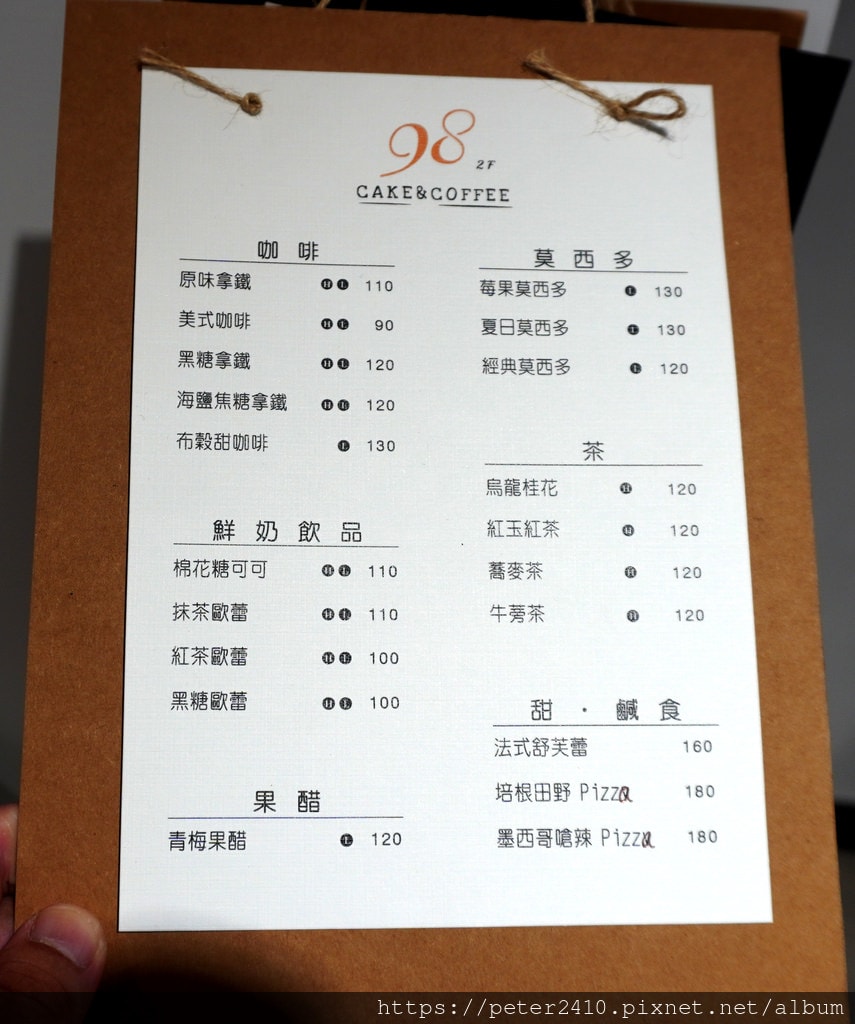 98 2F
CAKE&COFFEE
咖啡
原味拿鐵 H I 110
美式咖啡 H I 90
黑糖拿鐵 H I 120
海鹽焦糖拿鐵 H I 120
布穀甜咖啡 I 130
鮮奶飲品
棉花糖可可 H I 110
抹茶歐蕾 H I 110
紅茶歐蕾 H I 100
黑糖歐蕾 H I 100
果醋
青梅果醋 I 120
莫西多
莓果莫西多 I 130
夏日莫西多 I 130
經典莫西多 I 120
茶
烏龍桂花 H 120
紅玉紅茶 H 120
蕎麥茶 H 120
牛蒡茶 H 120
甜・鹹食
法式舒芙蕾 160
培根田野 Pizza 180
墨西哥嗆辣 Pizza 180
https://peter2410.pixnet.net/album